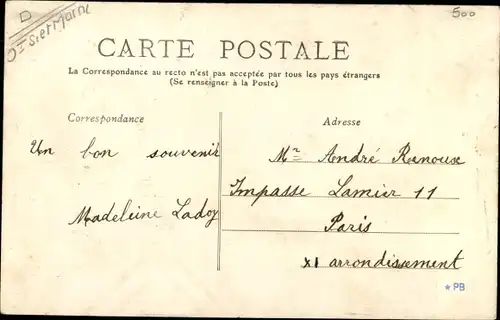 D
St Germain
500
CARTE POSTALE
La Correspondance au recto n'est pas acceptée par tous les pays étrangers
(Se renseigner à la Poste)
Correspondance
Un bon souvenir
Madeleine Ladoy
Adresse
Mr André Ranoux
Impasse Lamier 11
Paris
XI arrondissement
* PB